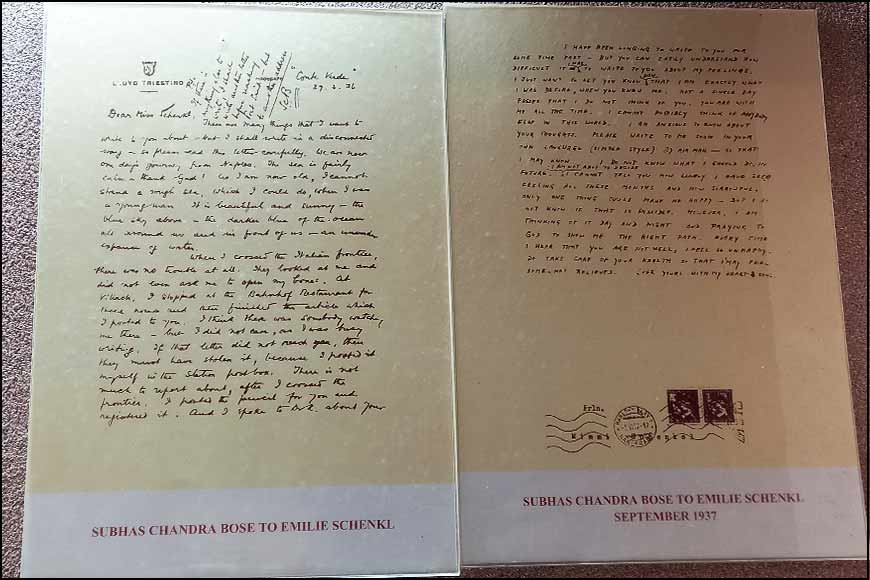 LLOYD TRIESTINO
"Conte Verde"
29. 3. 36
Dear Miss Schenkl,
There are many things that I want to
write to you about – but I shall write in a disconnected
way – so please read this letter carefully. We are now
one day's journey, from Naples. The sea is fairly
calm – thank God! As I am now old, I cannot
stand a rough sea, which I could do, when I was
a young man. It is beautiful and sunny – the
blue sky above – the darker blue of the ocean
all around us and in front of us – an unending
expanse of water.
When I crossed the Italian frontier,
there was no trouble at all. They looked at me and
did not even ask me to open my boxes. At
Villach, I stopped at the Bahnhof Restaurant for
three hours and then finished the article which
I posted to you. I think there was somebody watching
me there – but I did not care, as I was busy
writing. If that letter did not reach you, then
they must have stolen it, because I posted it
myself in the station postbox. There is not
much to report about, after I crossed the
frontier. I posted the parcel for you and
registered it. And I spoke to about your
SUBHAS CHANDRA BOSE TO EMILIE SCHENKL
I HAVE BEEN LONGING TO WRITE TO YOU FOR
SOME TIME PAST – BUT YOU CAN EASILY UNDERSTAND HOW
DIFFICULT IT WAS TO WRITE TO YOU ABOUT MY FEELINGS.
I JUST WANT TO LET YOU KNOW NOW THAT I AM EXACTLY WHAT
I WAS BEFORE, WHEN YOU KNEW ME. NOT A SINGLE DAY
PASSES THAT I DO NOT THINK OF YOU. YOU ARE WITH
ME ALL THE TIME. I CANNOT POSSIBLY THINK OF ANYBODY
ELSE IN THIS WORLD. I AM ANXIOUS TO KNOW ABOUT
YOUR THOUGHTS. PLEASE WRITE TO ME SOON IN YOUR
OWN LANGUAGE (SIMPLE STYLE) BY AIR MAIL – SO THAT
I MAY KNOW. I DO NOT KNOW WHAT I SHOULD DO IN
FUTURE. I AM NOT ABLE TO DECIDE. I CANNOT TELL YOU HOW LONELY I HAVE BEEN
FEELING ALL THESE MONTHS AND HOW SORROWFUL.
ONLY ONE THING COULD MAKE ME HAPPY – BUT I DO
NOT KNOW IF THAT IS POSSIBLE. HOWEVER, I AM
THINKING OF IT DAY AND NIGHT AND PRAYING TO
GOD TO SHOW ME THE RIGHT PATH. EVERY TIME
I HEAR THAT YOU ARE NOT WELL, I FEEL SO UNHAPPY.
DO TAKE CARE OF YOUR HEALTH SO THAT I MAY FEEL
SOMEWHAT RELIEVED. YOURS WITH MY HEART & SOUL
Frln.
SUBHAS CHANDRA BOSE TO EMILIE SCHENKL
SEPTEMBER 1937